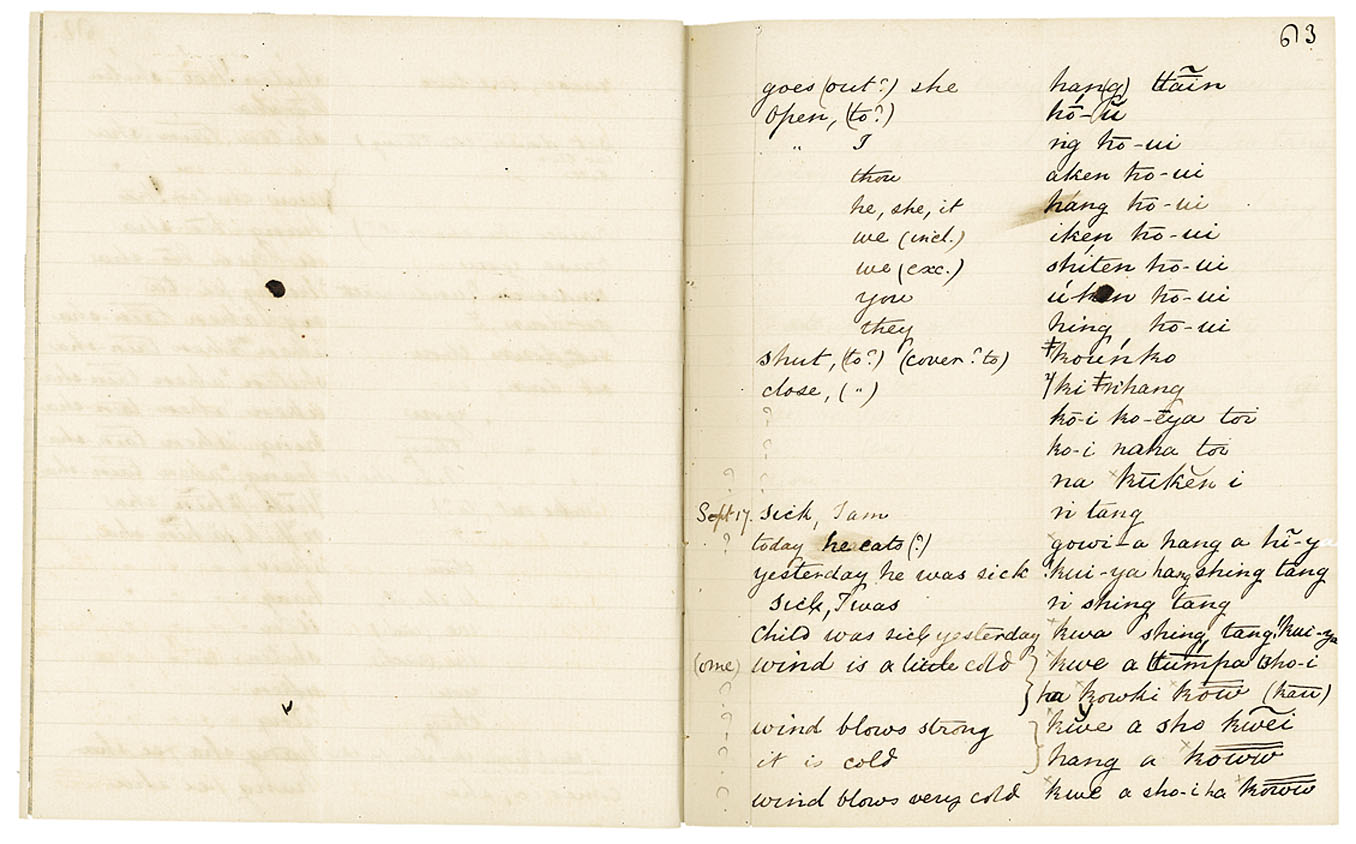 63
goes (out?) she han(g) ttãin
open, (to?) kó-ũ
" I ng kō-ui
thou aken kō-ui
he, she, it hang kō-ui
we (incl.) iken kō-ui
we (exc.) shiten kō-ui
you úken kō-ui
they hing kō-ui
shut, (to?) (cover? to) ǂkoúnko
close, (") kiǂnhang
? kō-i ko-ēya toi
? ko-i naka toi
? ? na ×kūkĕn i
Sept 17. sick, I am n tang
? today he eats (?) ×gowi-a hang a hĩ-ya
yesterday he was sick kui-ya hang shing tang
sick, I was n shing tang
child was sick yesterday ×kwa shing tang kui-ya
(ome) wind is a little cold } ×kwe a sho-i
? ha ×kowki ×kōw (kau)
? wind blows strong } ×kwe a sho kwẽi
? it is cold hang a ×koww
? wind blows very cold ×kwe a sho-i ha ×kowww